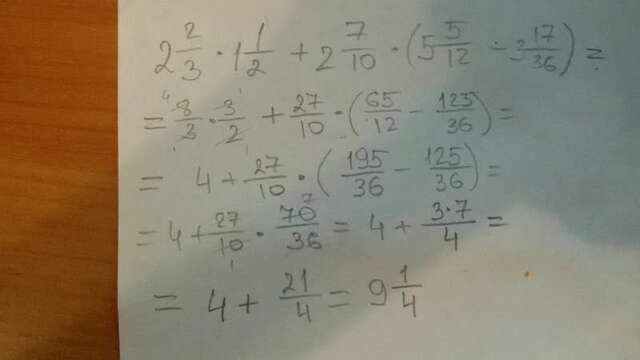 2 2/3 · 1 1/2 + 2 7/10 · (5 5/12 - 3 17/36) =
= 8/3 · 3/2 + 27/10 · (65/12 - 125/36) =
= 4 + 27/10 · (195/36 - 125/36) =
= 4 + 27/10 · 70/36 = 4 + 3·7/4 =
= 4 + 21/4 = 9 1/4